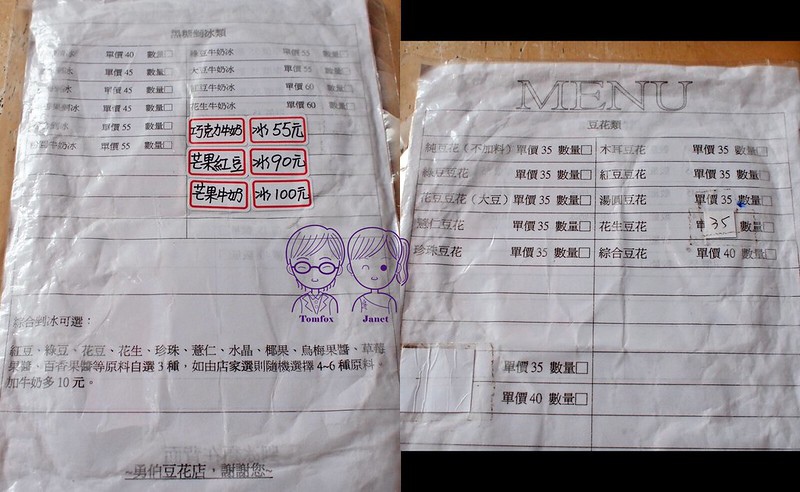 黑糖剉冰類
單價 40 數量□ 綠豆牛奶冰 單價 55 數量□
單價 45 數量□ 大豆牛奶冰 單價 55 數量□
單價 45 數量□ 紅豆牛奶冰 單價 60 數量□
單價 45 數量□ 花生牛奶冰 單價 60 數量□
單價 55 數量□ 巧克力牛奶 冰 55元
牛奶冰 單價 55 數量□
芒果紅豆 冰 90元
芒果牛奶 冰 100元
綜合剉冰可選：
紅豆、綠豆、花豆、花生、珍珠、薏仁、水晶、椰果、烏梅果醬、草莓
果醬、百香果醬等原料自選 3 種，如由店家選則隨機選擇 4~6 種原料。
加牛奶多 10 元。
~勇伯豆花店，謝謝您~
Tomfox Janet
MENU
豆花類
純豆花（不加料） 單價 35 數量□ 木耳豆花 單價 35 數量□
綠豆豆花 單價 35 數量□ 紅豆豆花 單價 35 數量□
花豆豆花（大豆） 單價 35 數量□ 湯圓豆花 單價 35 數量□
薏仁豆花 單價 35 數量□ 花生豆花 單 35 數量□
珍珠豆花 單價 35 數量□ 綜合豆花 單價 40 數量□
單價 35 數量□
單價 40 數量□